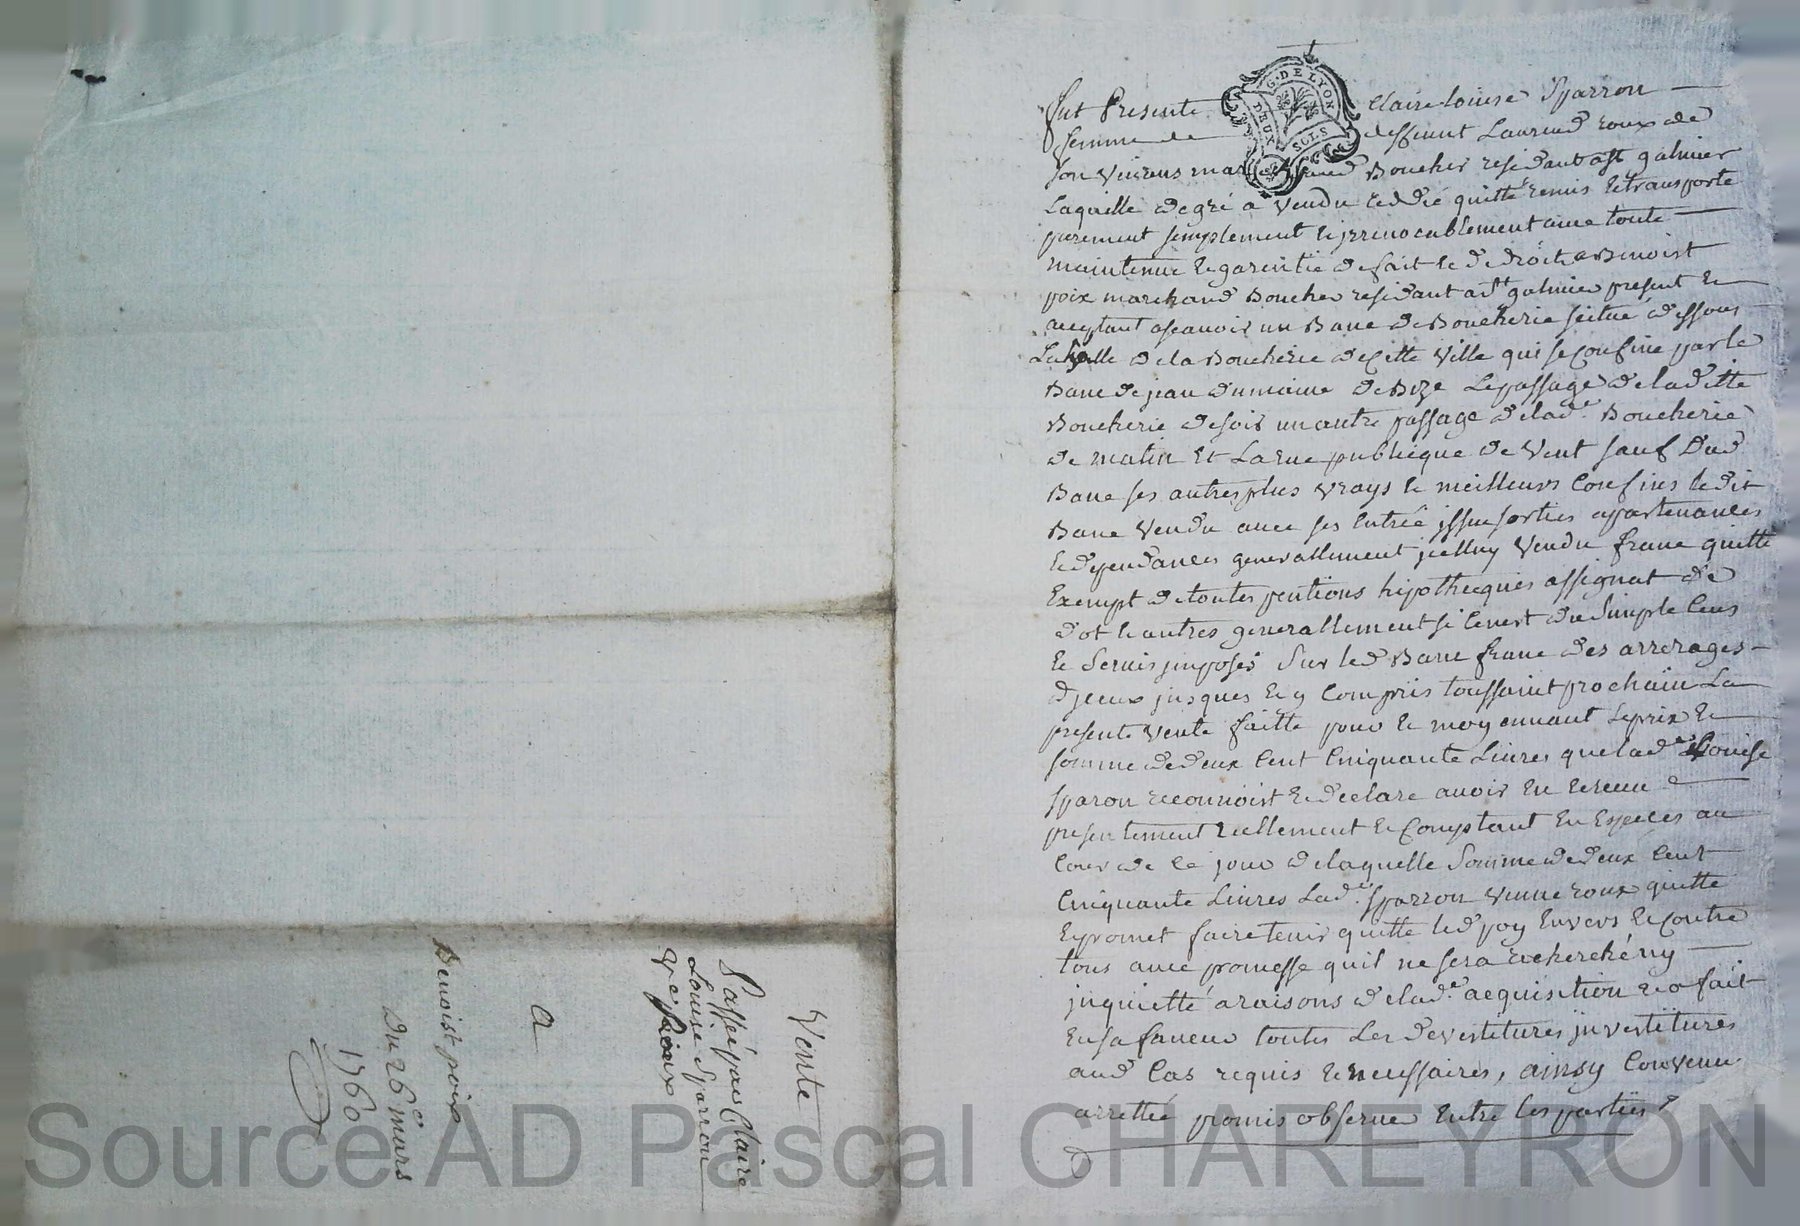 Vente
Passé par Claire
Louise Sparron
Ve Roux
a
Benoist poix
Du 26e mars
1760
G. DE LYON
DEUX SOLS
fut Presente Claire Louise Sparron
femme de deffunt Laurend roux de
son vivans marchand Boucher residant a st galmier
Laquelle de gré a vendu ceddé quitté remis et transporté
purement simplement et jrrevocablement avec toute
maintenue et garentie de fait et de droit a Benoist
poix marchand Boucher residant a st galmier present et
aceptant ascavoir un Banc de Boucherie scitué dessous
La halle de la Boucherie de cette ville qui se confine par le
Banc de jean dumaine de Bize Le passage de la ditte
Boucherie de soir un autre passage de lade Boucherie
de matin et La rue publique de vent sauf dud
Banc ses autres plus vrays et meilleurs confins ledit
Banc vendu avec ses entrée jssue sorties apartenances
et dependances generallement jcelluy vendu franc quitte
Exempt de toutes pentions hipotheques assignat de
dot et autres generallement si ce n'est du simple cens
et servis jmposés sur led Banc franc des arrerages
djceux jusques et y compris toussaint prochain La
presente vente faitte pour et moyennant le prix et
somme de deux cent cinquante Livres que lade Louise
sparon reconnoist et declare avoir eu et receu
presentement reellement et comptant en especes au
cour de ce jour de laquelle somme de deux cent
cinquante Livres Lade sparron veuve roux quitte
et promet faire tenir quitte led poy envers et contre
tous avec promesse quil ne sera recherché ny
jnquietté a raisons de lade acquisition et a fait
en sa faveur toutes les devestitures jnvestitures
aud cas requis et necessaires, ainsy convenu
arrettée promis observer entre les parties
Source AD Pascal CHAREYRON